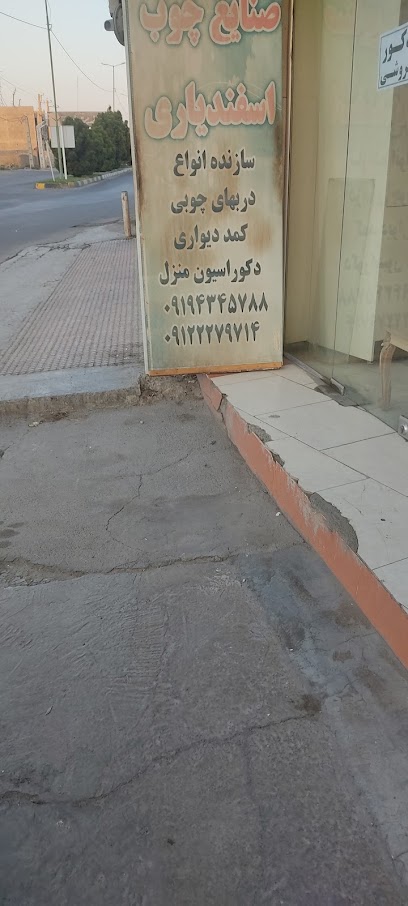 صنایع چوب
اسفندیاری
سازنده انواع
دربهای چوبی
کمد دیواری
دکوراسیون منزل
۰۹۱۹۴۳۴۵۷۸۸
۰۹۱۲۲۲۷۹۷۱۴